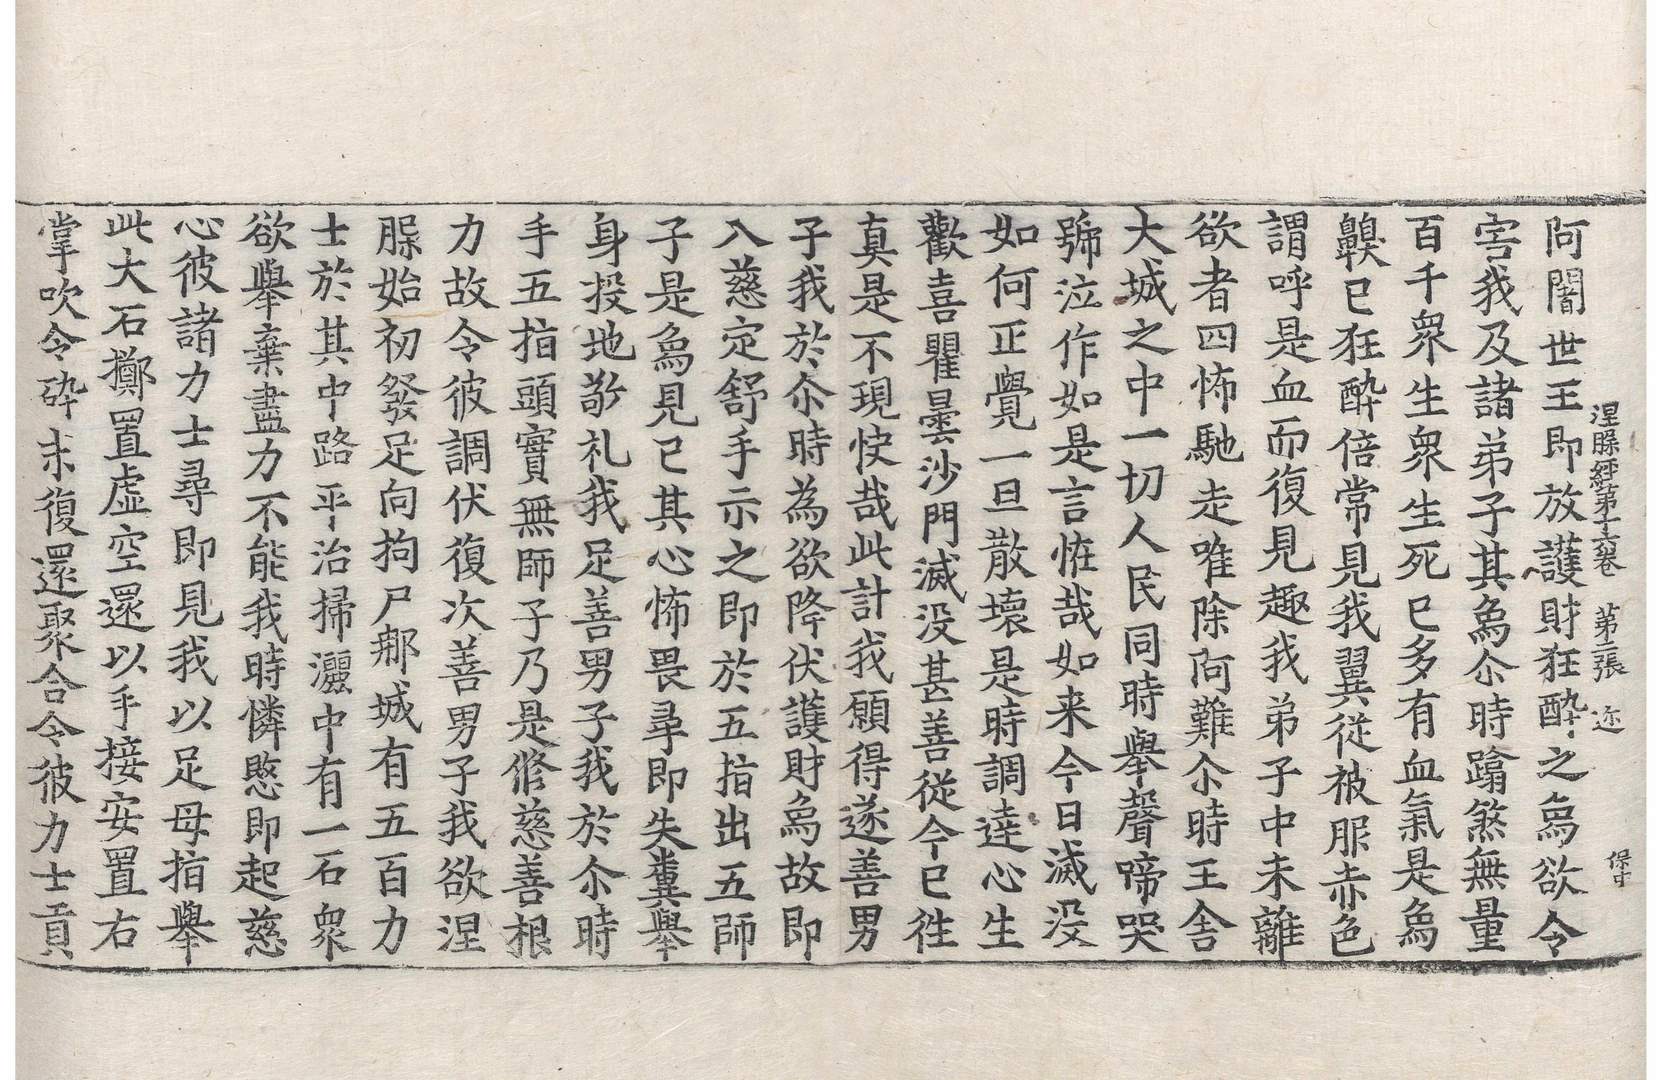 涅槃經第十六卷 第二張 迩 保中
阿闍世王即放護財狂醉之爲欲令
害我及諸弟子其爲尒時蹋煞無量
百千衆生衆生死已多有血氣是爲
齅已狂醉倍常見我翼從被服赤色
謂呼是血而復見趣我弟子中未離
欲者四怖馳走唯除阿難尒時王舍
大城之中一切人民同時舉聲啼哭
號泣作如是言恠哉如来今日滅没
如何正覺一旦散壞是時調達心生
歡喜瞿曇沙門滅没甚善從今已徃
真是不現快哉此計我願得遂善男
子我於尒時為欲降伏護財爲故即
入慈定舒手示之即於五指出五師
子是爲見已其心怖畏尋即失糞舉
身投地敬礼我足善男子我於尒時
手五指頭實無師子乃是修慈善根
力故令彼調伏復次善男子我欲涅
槃始初發足向拘尸那城有五百力
士於其中路平治掃灑中有一石衆
欲舉棄盡力不能我時憐愍即起慈
心彼諸力士尋即見我以足母指舉
此大石擲置虚空還以手接安置右
掌吹令碎末復還聚合令彼力士貢